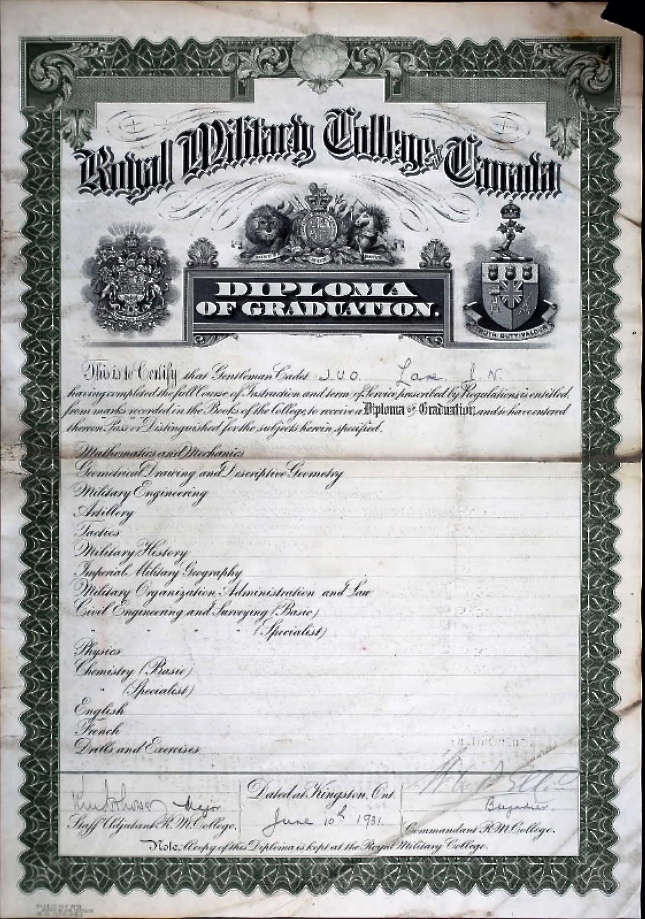 Royal Military College of Canada
DIPLOMA
OF GRADUATION.
TRUTH DUTY VALOUR
This is to Certify that Gentleman Cadet J.U.O. Lane J. N.
having completed the full Course of Instruction and term of Service prescribed by Regulations is entitled,
from marks recorded in the Books of the College, to receive a Diploma of Graduation, and to have entered
thereon Pass or Distinguished for the subjects herein specified.
Mathematics and Mechanics
Geometrical Drawing and Descriptive Geometry
Military Engineering
Artillery
Tactics
Military History
Imperial Military Geography
Military Organization, Administration and Law
Civil Engineering and Surveying (Basic)
" " " (Specialist)
Physics
Chemistry (Basic)
" (Specialist)
English
French
Drills and Exercises
Major
Staff Adjutant R.M. College.
Dated at Kingston, Ont.
June 10th 1931
Brigadier.
Commandant R.M. College.
Note: A copy of this Diploma is kept at the Royal Military College.